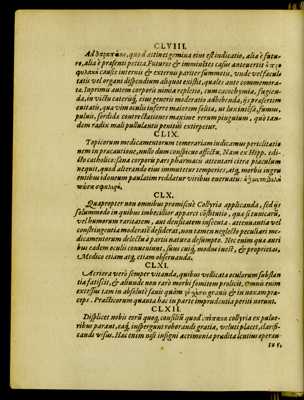 CLVIII.
quod attinet gemina eius est indicatio, alia è futu-
ro, alia è praesenti petita. Futurus & imminens casus antevertit
causis internis & externis pariter summotis, unde vel facul-
tatis vel organi dispendium aliquod existit, quales ante commemora-
ta. Inprimis autem corporis nimia repletio, cum cacochymia, fugien-
da, in victu caeterisque, eius generis moderatio adhibenda, iis praesertim
evitatis, quae vim oculis inferre maiorem solita, ut lux intensa, fumus,
pulvis, sordida contrectationes maxime rerum pinguium, quò tan-
dem radix mali pullulantis penitus extirpetur.
CLIX.
Topicorum medicamentorum temerariam indicamus pericli
nem in praecautione, nulla dum conspicua affectu. Nam ex Hipp. edi-
cto catholico: sana corporis pars pharmaci attentari citra piaculum
nequit, quod alterando eius immutetur temperies, atque morbis ingru
entibus idoneum paulatim reddatur viribus enervatu.
CLX.
Quapropter non omnibus promiscuè Collyria applicanda, sed iis
solummodo in quibus imbecillior apparet constitutio, quae si tunicarum,
vel humorum raritatem, aut densitatem insecuta, attenuantia vel
constringentia moderatè desiderat, non tamen neglecto peculiari me-
dicamentorum delectu à partis natura desumpto. Nec enim qua auri
bus eadem oculis convenient, sinus cuique modus inest, & proprietas,
Medico etiam atque etiam observanda.
CLXI.
Acriora verò semper vitanda, quibus vellicata ocularum substan
tia fatiscit, & aliunde non rarò morbi fomitem prolicit. Omnis enim
excessus tam in absolutè sanis quàm & in noxam prae-
ceps. Practicorum quanta hac in parte imprudentia periti norunt.
CLXII.
Displicet nobis eorum quoque consilium quod collyria ex pulve-
ribus parant, eaque, inspergunt roborandi gratia, veluti placet, clarifi-
candi visus. Hac enim nisi insigni acrimonia praedita levius operan-